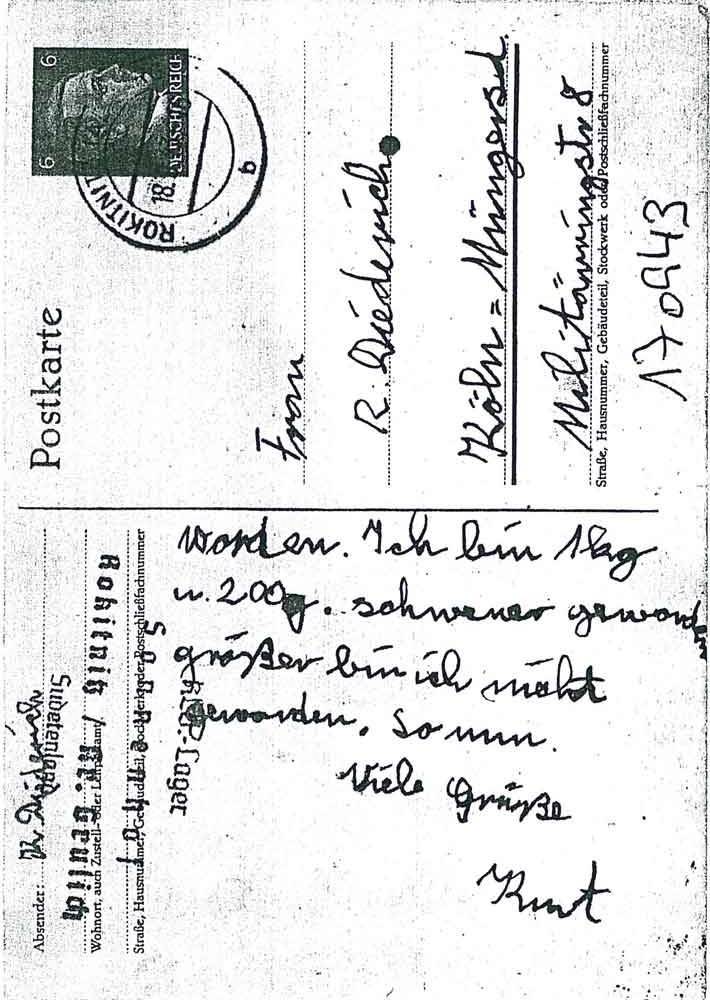 Postkarte
6 6
DEUTSCHES REICH
ROKITNIT
18.
b
Frau
R. Diederich
Köln = Müngersd.
Militärringstr 8
Straße, Hausnummer, Gebäudeteil, Stockwerk oder Postschließfachnummer
170943
Absender: K. Diederich
Sudetenland
Rokitnitz / Kr. Grulich
Wohnort, auch Zustell- oder Leitpostamt
Straße, Hausnummer, Gebäudeteil, Stockwerk oder Postschließfachnummer
Lager
worden. Ich bin 1kg
u. 200g. schwerer geword
größer bin ich nicht
geworden. So nun.
Viele Grüße
Kurt